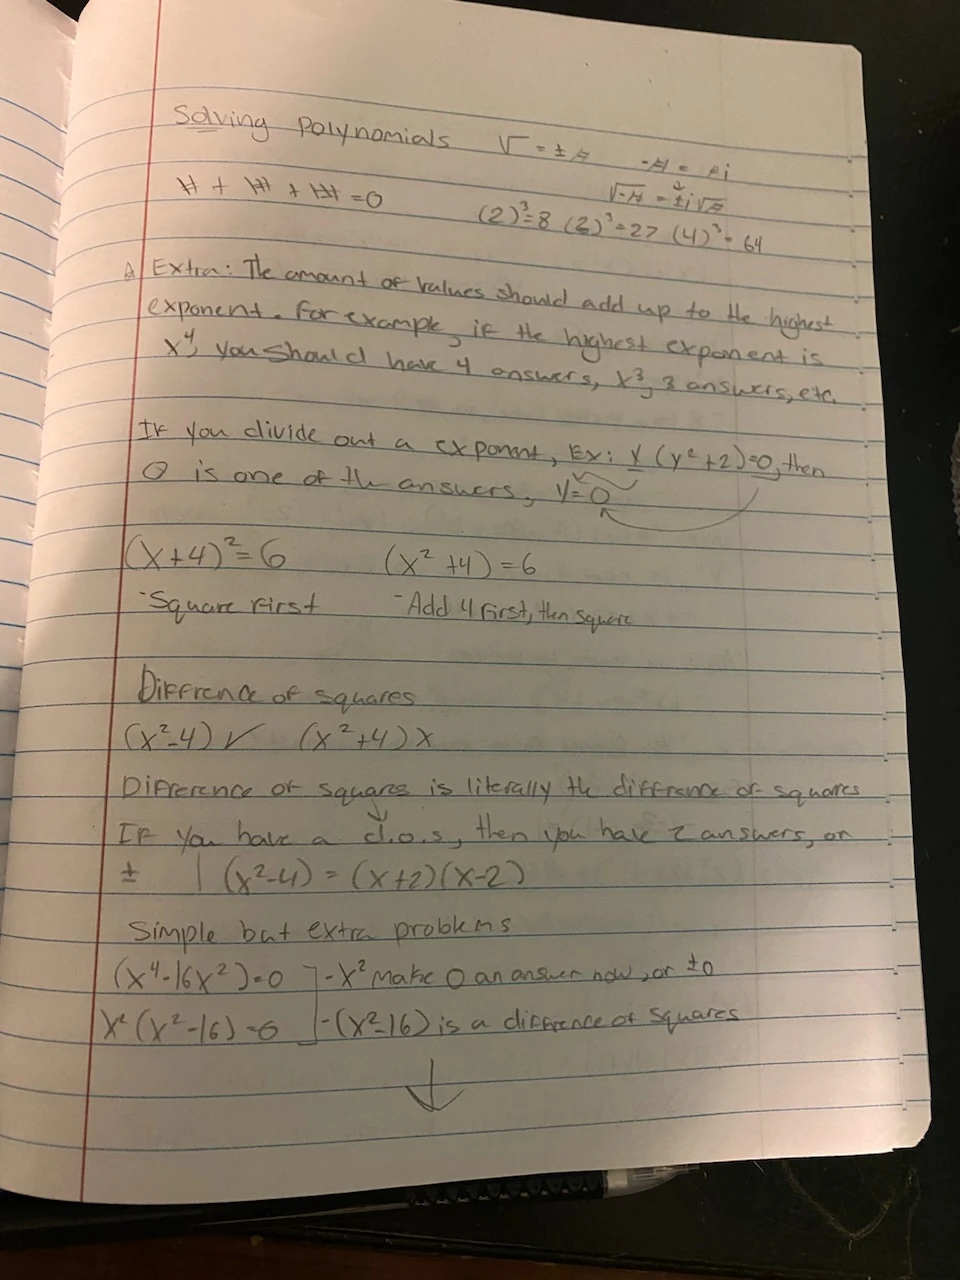 Solving Polynomials √ = ± # -# = #i
# + # + # = 0 √-# = ±i√#
(2)³=8 (3)³=27 (4)³=64
Extra: The amount of values should add up to the highest
exponent. For example, if the highest exponent is
x⁴, you should have 4 answers, x³, 3 answers, etc.
If you divide out a exponent, Ex: y (y²+2)=0, then
0 is one of the answers, y=0
(x+4)²=6 (x²+4)=6
-Square first -Add 4 first, then square
Diffrence of squares
(x²-4) ✓ (x²+4) X
Difference of squares is literally the diffrence of squares
If you have a d.o.s, then you have 2 answers, or
± | (x²-4) = (x+2)(x-2)
Simple but extra problems
(x⁴-16x²)=0 -x² make 0 an answer now, or ±0
x²(x²-16)=0 -(x²-16) is a diffrence of squares